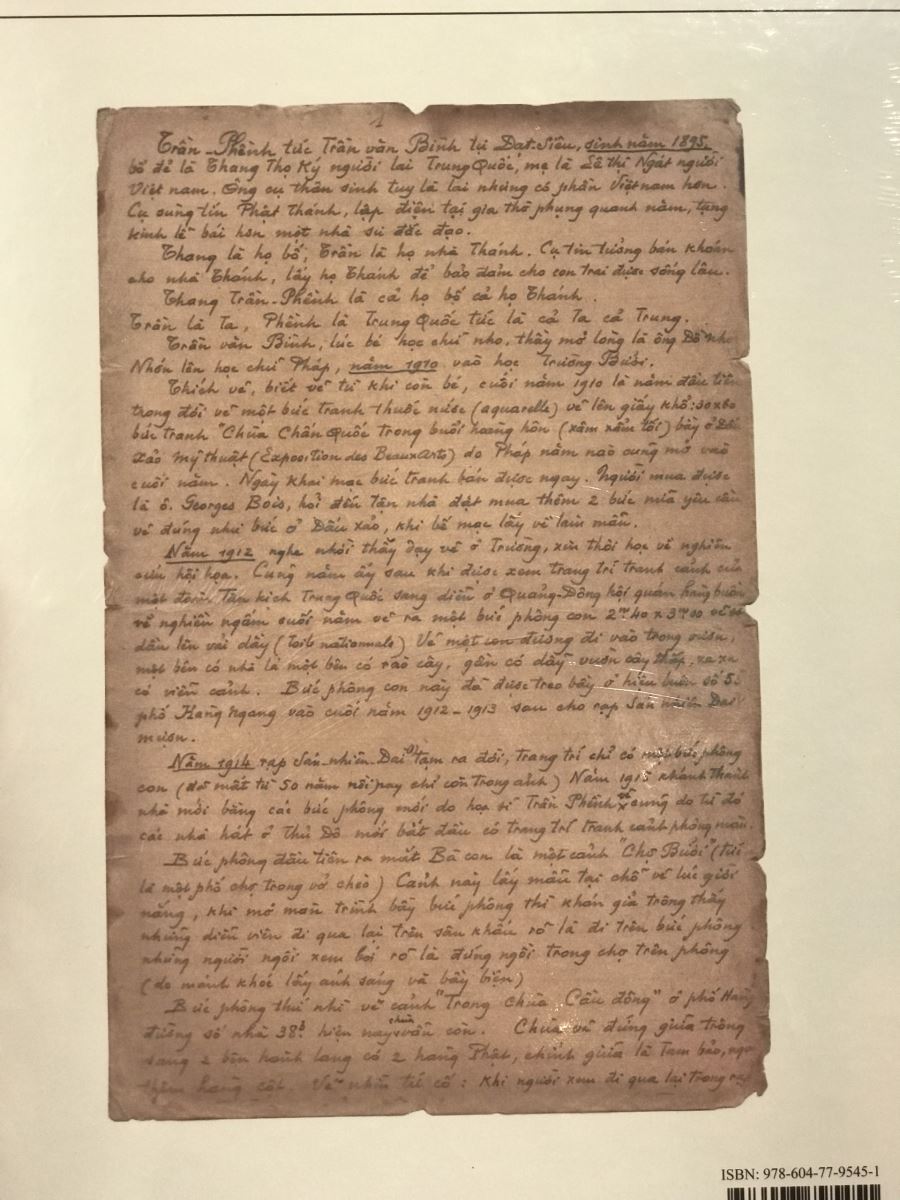 1
Trần Phềnh tức Trần văn Bình tự Đạt-Siêu, sinh năm 1895.
bố đẻ là Thang Thọ Ký người lai Trung Quốc, mẹ là Lê thị Ngát người
Việt nam. Ông cụ thân sinh tuy là lai nhưng có phần Việt nam hơn.
Cụ sùng tín Phật Thánh, lập điện tại gia thờ phụng quanh năm, tụng
kinh lễ bái hơn một nhà sư đắc đạo.
Thang là họ bố, Trần là họ nhà Thánh. Cụ tin tưởng bán khoán
cho nhà Thánh, lấy họ Thánh để bảo đảm cho con trai được sống lâu.
Thang Trần-Phềnh là cả họ bố cả họ Thánh.
Trần là Ta, Phềnh là Trung Quốc tức là cả Ta cả Trung.
Trần văn Bình, lúc bé học chữ nho, thầy mở lòng là ông Đồ nho
Nhớn lên học chữ Pháp, năm 1910 vào học Trường Bưởi.
Thích vẽ, biết vẽ từ khi còn bé, cuối năm 1910 là năm đầu tiên
trong đời vẽ một bức tranh thuốc nước (aquarelle) vẽ lên giấy khổ: 30x60
bức tranh "Chùa Chấn Quốc trong buổi hoàng hôn (xâm xẩm tối) bày ở Đấu
Xảo Mỹ thuật (Exposition des Beaux Arts) do Pháp năm nào cũng mở vào
cuối năm. Ngày khai mạc bức tranh bán được ngay. Người mua được
là ô. Georges Bois, hỏi đến tận nhà đặt mua thêm 2 bức nữa yêu cầu
vẽ đúng như bức ở Đấu xảo, khi bế mạc lấy về làm mẫu.
Năm 1912 nghe nhời thầy dạy vẽ ở Trường, xin thôi học về nghiên
cứu hội họa. Cũng năm ấy sau khi được xem trang trí tranh cảnh của
một đoàn Tân kịch Trung Quốc sang diễn ở Quảng-Đông hội quán hàng buồm
về nghiền ngẫm suốt năm vẽ ra một bức phông con 2m40 x 3m00 vẽ
dầu lên vải dầy (toile nationale) Vẽ một con đường đi vào trong vườn,
một bên có nhà lá một bên có rào cây, gần có dãy vườn cây thấp, xa xa
có viễn cảnh. Bức phông con này đã được treo bầy ở hiệu luôn số 5
phố Hàng Ngang vào cuối năm 1912-1913 sau cho rạp Sán nhiên Đài
mượn.
Năm 1914 rạp Sán-nhiên-Đài tạm ra đời, trang trí chỉ có một bức phông
con (đã mất từ 50 năm nay chỉ còn trong ảnh) Năm 1915 khánh thành
nhà mới bằng các bức phông mới do họa sĩ Trần Phềnh vẽ cũng do từ đó
các nhà hát ở Thủ Đô mới bắt đầu có trang trí tranh cảnh phông màn.
Bức phông đầu tiên ra mắt Bà con là một cảnh "Chợ Bưởi" (tức
là một phố chợ trong vở chèo) Cảnh này lấy mẫu tại chỗ vẽ lúc giời
nắng, khi mở màn trình bầy bức phông thì khán giả trông thấy
những diễn viên đi qua lại trên sân khấu rõ là đi trên bức phông
những người ngồi xem bói rõ là đứng ngồi trong chợ trên phông
(do mánh khoé lấy ánh sáng và bầy biện)
Bức phông thứ nhì vẽ cảnh "Trong chùa Cầu đông" ở phố Hàng
đường số nhà 38b hiện nay chùa vẫn còn. Chùa vẽ đứng giữa trông
sang 2 bên hành lang có 2 hàng Phật, chính giữa là Tam bảo,
thềm hàng cột. Vẽ nhìn tứ cố: khi người xem đi qua lại trong rạp
ISBN: 978-604-77-9545-1